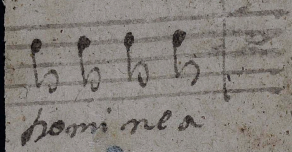 homi ne a